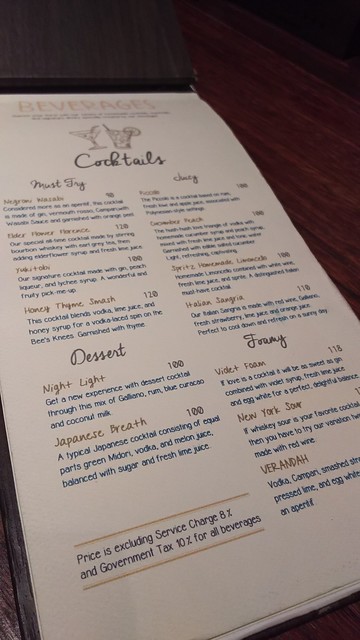 BEVERAGES
Cocktails
Must Try
Negroni Wasabi 90
Considered more as an aperitif, this cocktail
is made of gin, vermouth rosso, Campari with
Wasabi Sauce and garnished with orange peel
Elder Flower Florence 120
Our special all-time cocktail made by stirring
bourbon whiskey with earl grey tea, then
adding elderflower syrup and fresh lime juice.
Yukitobi 100
Our signature cocktail made with gin, peach
liqueur, and lychee syrup. A wonderful and
fruity pick me up.
Honey Thyme Smash 120
This cocktail blends vodka, lime juice, and
honey syrup for a vodka-laced spin on the
Bee's Knees. Garnished with thyme.
Dessert
Night Light 100
Get a new experience with dessert cocktail
through this mix of Galliano, rum, blue curacao
and coconut milk.
Japanese Breath 100
A typical Japanese cocktail consisting of equal
parts green Midori, vodka, and melon juice,
balanced with sugar and fresh lime juice.
Juicy
100
cocktail based on rum,
fresh kiwi and apple juice, associated with
Polynesian-style settings.
Cucumber Peach 100
homemade cucumber syrup and peach syrup,
mixed with fresh lime juice and soda water.
Garnished with edible salted cucumber.
Light, refreshing, captivating.
Spritz Homemade Limoncello 100
Homemade Limoncello combined with white wine,
fresh lime juice, and sprite. A distinguished Italian
must have cocktail.
Italian Sangria 110
Our Italian Sangria is made with red wine, Galliano,
fresh strawberry, lime juice and orange juice.
Perfect to cool down and refresh on a sunny day.
Foamy
Violet Foam 118
If love is a cocktail it will be as sweet as gin
combined with violet syrup, fresh lime juice
and egg white for a perfect, delightful balance.
New York Sour
If whiskey sour is your favorite cocktail
then you have to try our variation
made with red wine.
VERANDAH
Vodka, Campari, smashed
pressed lime, and egg white
an aperitif.
Price is excluding Service Charge 8%
and Government Tax 10% for all beverages